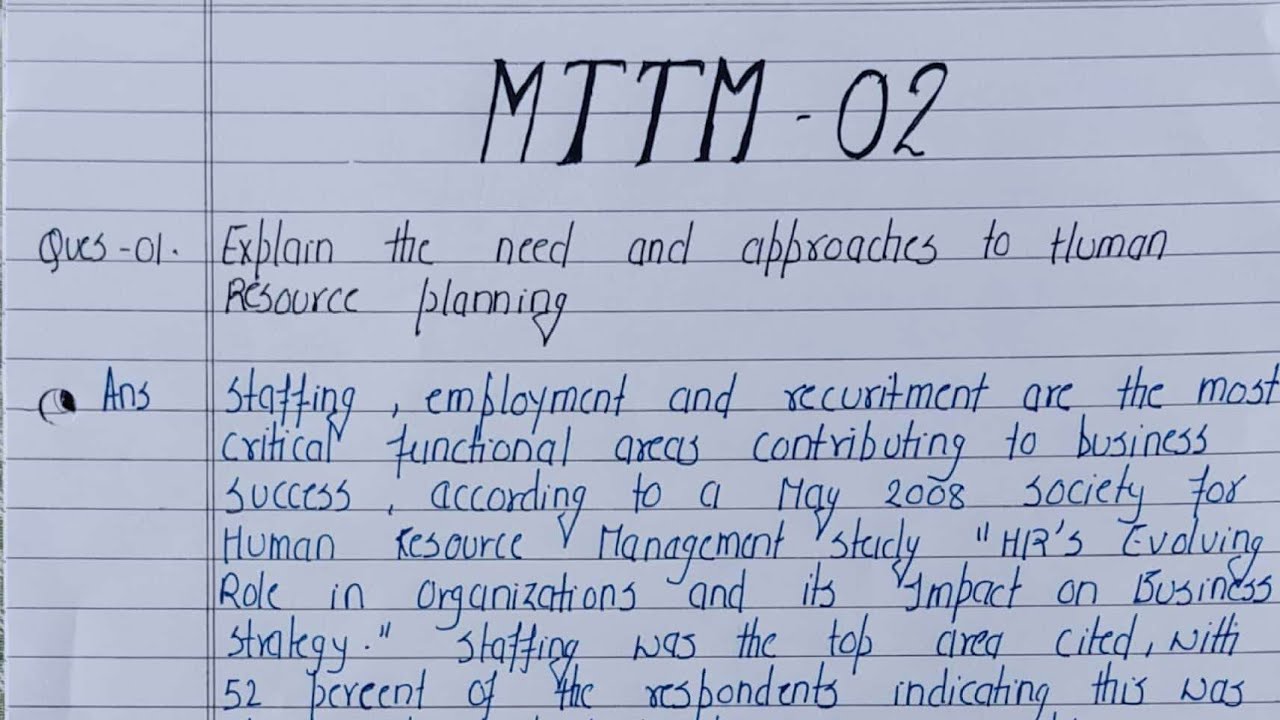 MTTM - 02
Ques -01. Explain the need and approaches to Human
Resource planning
Ans Staffing , employment and recuritment are the most
critical functional areas contributing to business
success , according to a May 2008 society for
Human Resource Management study "HR's Evolving
Role in organizations and its Impact on Business
strategy." staffing was the top area cited, with
52 percent of the respondents indicating this was